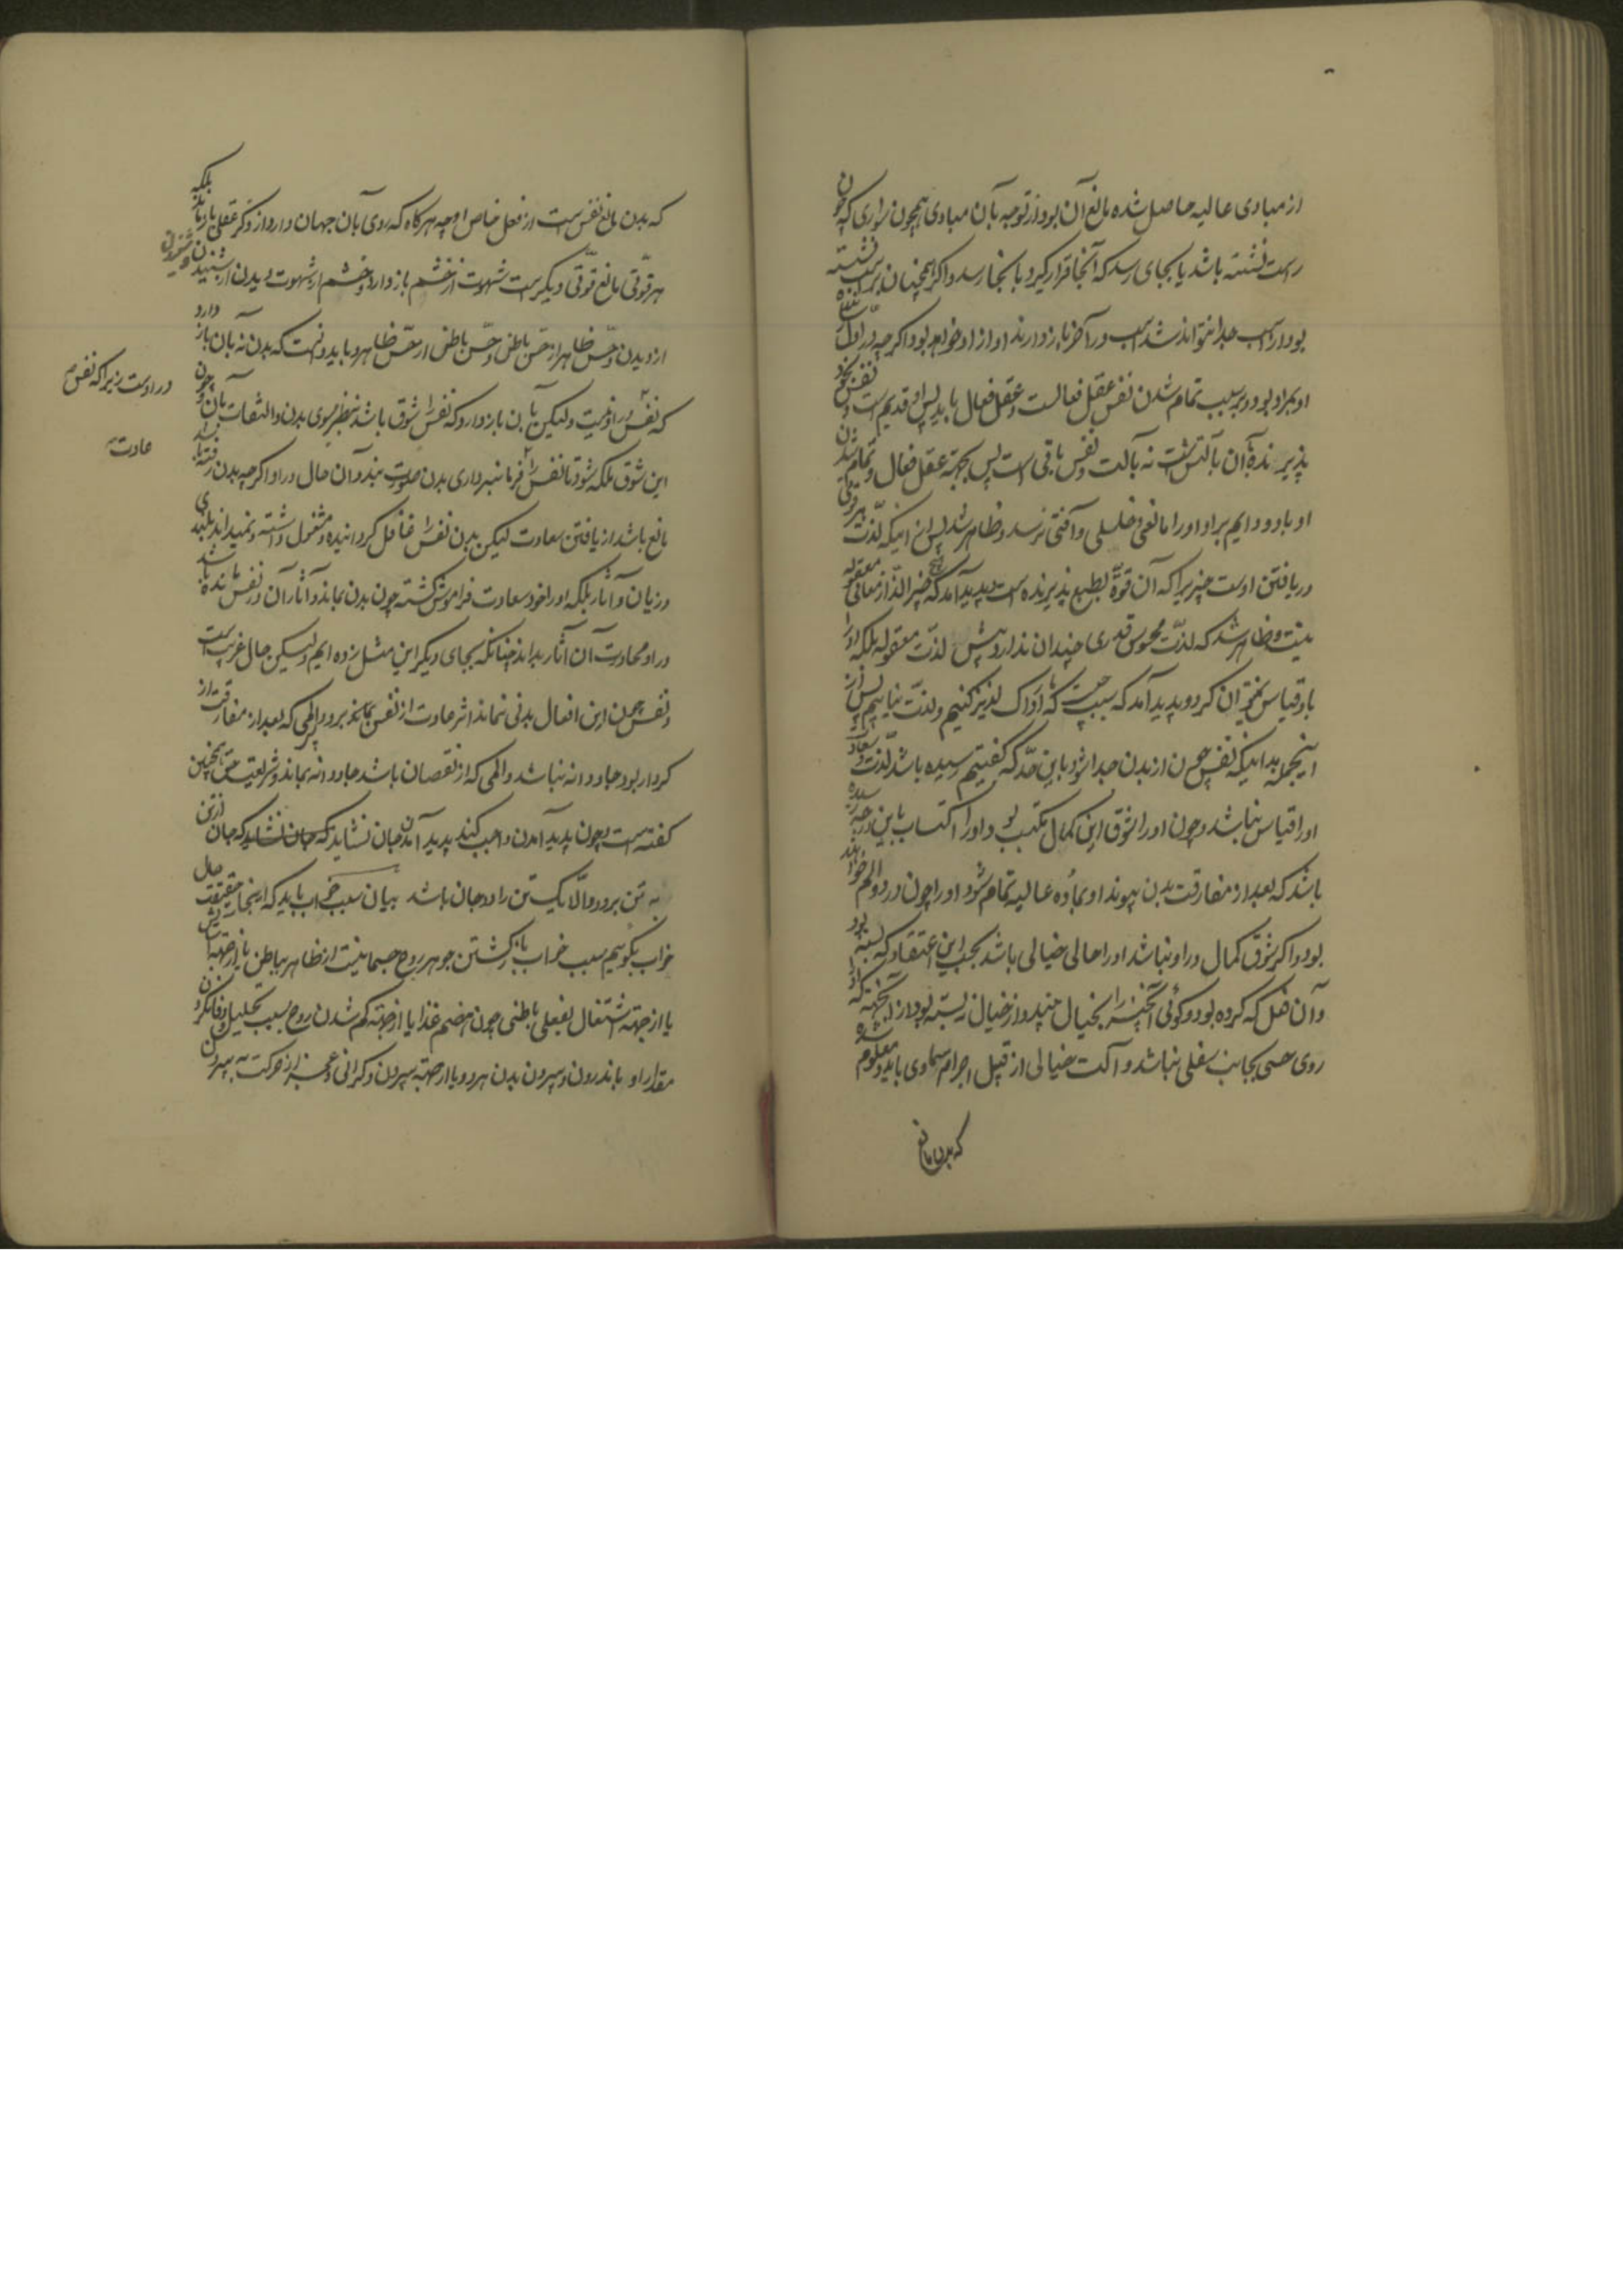 از مبادی عالیه حاصل شده مانع آن بود از توجه بآن مبادی همچون سواری که چون
راست نشسته باشد یا بجای رسد که آنجا قرار گیرد یا بخار سد و اگر همچنان بر اسب نشسته
بود از اسب جدا نتواند شد اسب در آخر باز دارنده او از او خواهد بود اگر چه در اول
او بمراد بود و بر سبب تمام شدن نفس عقل فعالست و عقل فعال باید پس او قدیم است و نفس بخود
پذیرنده آن بآلتست نه بآلت و نفس باقی است پس بجهة عقل فعال و تمام شدن
او بارو دایم برآو او را مانعی و خللی و آفتی نرسد و ظاهر شد پس از اینکه لذت هر قوتی
دریافتن اوست چیزیرا که آن قوة بطبع پذیرنده است و پدید آمد که هیچ چیز الذ از معانی معقوله
نیست و ظاهر شد که لذت محسوس قدری چندان ندارد پیش لذت معقوله بلکه او را
باو قیاس نتوان کرد و پدید آمد که سبب چیست که ما ادراک لذیذ کنیم و لذت نیابیم پس از
اینجمله بدانیکه نفس چون از بدن جدا شود باین حد که گفتیم رسیده باشد لذت و سعادت
او را قیاس نباشد و چون او را شوق این کمال مکتسب بود و او را اکتساب باین درجه نرسیده
باشد که بعد از مفارقت بدن پیوند او بماده عالیه تمام شود او را چون درد و الم خواهند
بود و اگر شوق کمال در او نباشد او را حالی خیالی باشد بحسب این اعتقاد که بسته بود
و آن فعل که کرده بود و گوئی آنچیز را بخیال میپندارد از خیال رسته بود از آنجهة که او را
روی حسی بجانب سفلی نباشد و آلت خیالی از قبل اجرام سماوی یابد و معلوم شده
که بدن مانع
که بدن مانع نفس است از فعل خاص او چه هرگاه که روی بآن جهان دارد از فکر عقلی باز ماند بلکه
هر قوتی مانع قوتی دیگر است شهوت از خشم باز دارد و خشم از شهوت و دیدن از شنیدن و شنیدن
از دیدن و حس ظاهر از حس باطن و حس باطن از حس ظاهر و باید دانست که بدن نه بآن باز دارد
که نفس در اوست ولیکن بآن باز دارد که نفس را شوق باشد بنظر سوی بدن و التفات بآن و چون
در اوست زیرا که نفس
این شوق بلکه شود تا نفس را فرمانبرداری بدن صورت بندد آن حال در او اگر چه بدن رفته باشد
عادت
مانع باشد از یافتن سعادت لیکن بدن نفس را غافل گردانیده و مشغول داشته و نمیداند پلیدی
و زیان و آثار بلکه او را خود سعادت فراموش گشته چون بدن نماند و آثار آن در نفس مانده باشد
در او مجاورت آن آثار بداند چنانکه بجای دیگر این مثل زده ایم ولیکن حال غریب است
و نفس چون این افعال بدنی نماند اثر عادت از نفس بماند برود و المی که بعد از مفارقت از
کردار بود جاودانه نباشد و المی که از نقصان باشد جاودانه بماند و شریعت حق همچنین
گفته است و چون پدید آمدن واجب کند پدید آمدن جان نشاید که جان نشاید که جان از تن
به تن برود و الا یک تن را دو جان باشد بیان سبب خواب باید که از اینجا حقیقت حال
خواب بگوئیم سبب خواب باز گشتن جوهر روح جسمانیست از ظاهر بباطن یا از جهة آسایش
یا از جهة اشتغال بفعلی باطنی چون هضم غذا یا از جهة کم شدن روح بسبب تحلیل و وفا نکردن
مقدار او باندرون و بیرون بدن هر دو یا از جهة بیرون و گرانی و عجز از حرکت به بیرون